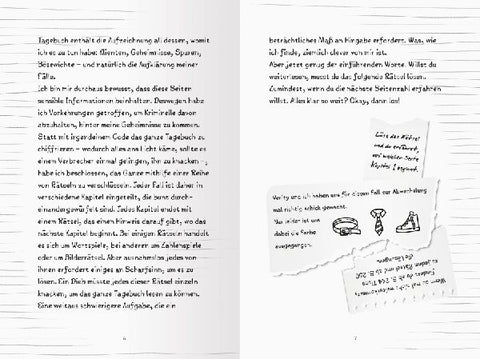 Tagebuch enthält die Aufzeichnung all dessen, womit
ich es zu tun habe: Klienten, Geheimnisse, Spuren,
Bösewichte – und natürlich die Aufklärung meiner
Fälle.
Ich bin mir durchaus bewusst, dass diese Seiten
sensible Informationen beinhalten. Deswegen habe
ich Vorkehrungen getroffen, um Kriminelle davon
abzuhalten, hinter meine Geheimnisse zu kommen.
Statt mit irgendeinem Code das ganze Tagebuch zu
chiffrieren – wodurch alles ans Licht käme, sollte es
einem Verbrecher einmal gelingen, ihn zu knacken –,
habe ich beschlossen, das Ganze mithilfe einer Reihe
von Rätseln zu verschlüsseln. Jeder Fall ist daher in
verschiedene Kapitel eingeteilt, die bunt durch-
einandergewürfelt sind. Jedes Kapitel endet mit
einem Rätsel, das einen Hinweis darauf gibt, wo das
nächste Kapitel beginnt. Bei einigen Rätseln handelt
es sich um Wortspiele, bei anderen um Zahlenspiele
oder um Bilderrätsel. Aber ausnahmslos jedes von
ihnen erfordert einiges an Scharfsinn, um es zu
lösen. Ein Dieb müsste jedes dieser Rätsel einzeln
knacken, um das ganze Tagebuch lesen zu können.
Eine weitaus schwierigere Aufgabe, die ein
6
beträchtliches Maß an Hingabe erfordert. Was, wie
ich finde, ziemlich clever von mir ist.
Aber jetzt genug der einführenden Worte. Willst du
weiterlesen, musst du das folgende Rätsel lösen.
Zumindest, wenn du die nächste Seitenzahl erfahren
willst. Alles klar so weit? Okay, dann los!
Löse das Rätsel
und du erfährst,
auf welcher Seite
Kapitel 1 beginnt.
Verity und ich haben uns für diesen Fall zur Abwechslung
mal richtig schick gemacht.
Nur leider ist uns
dabei die Farbe
ausgegangen.
Wenn du nicht weiterkommst,
findest du ab S. 244 Tipps
zu jedem Rätsel und ab S. 250
die Lösungen.
7